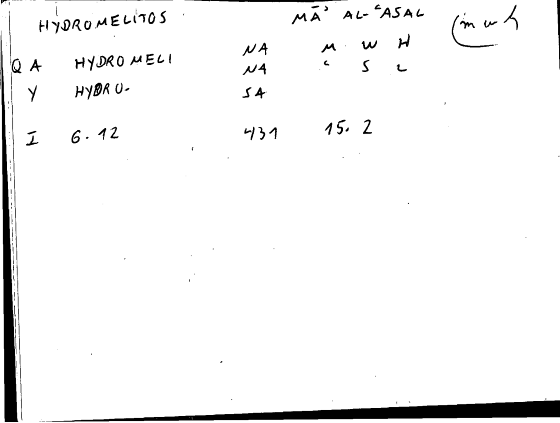 HYDROMELITOS MĀʾ AL-ʿASAL (m w h)
NA M W H
Q A HYDROMELI NA ʿ S L
Y HYDRO. SA
I 6.12 431 15.2